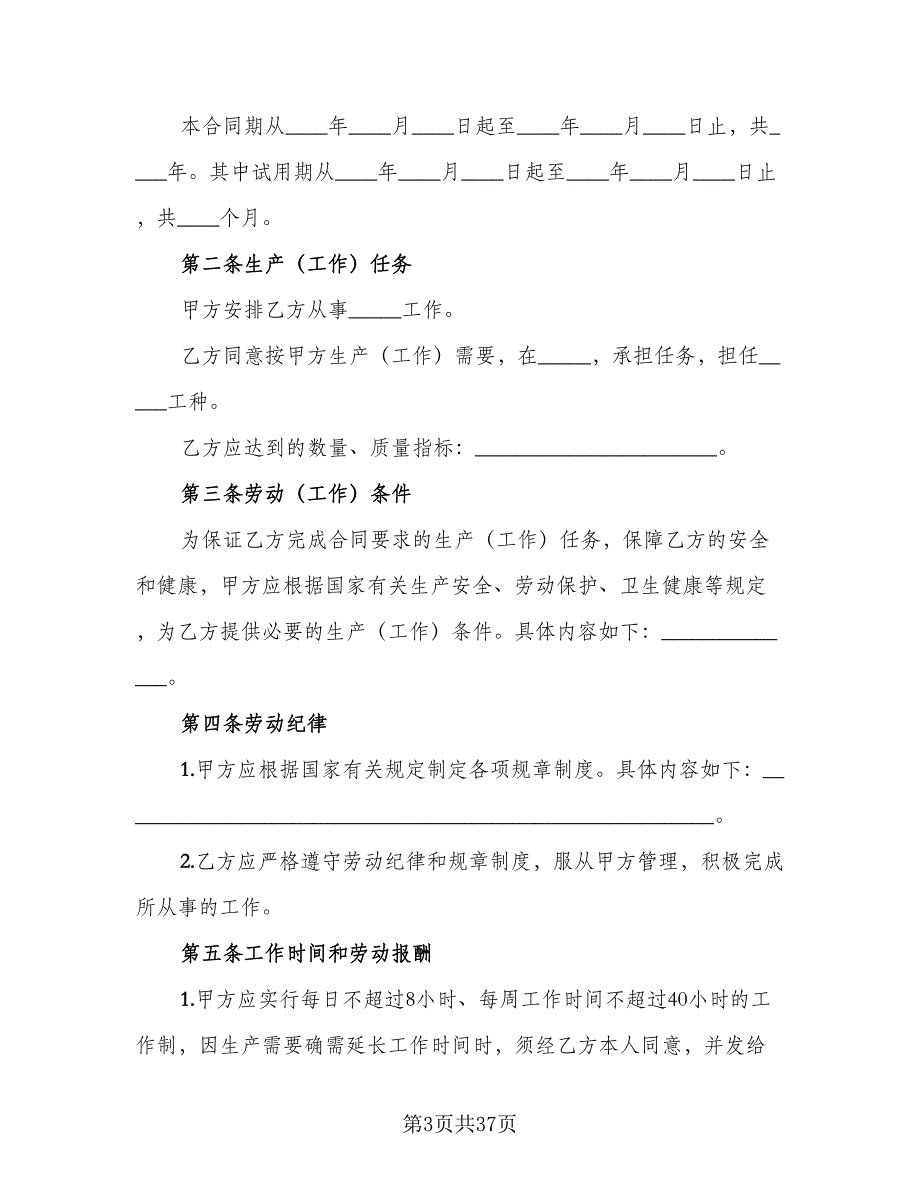 本合同期从____年____月____日起至____年____月____日止，共_
___年。其中试用期从____年____月____日起至____年____月____日止
，共____个月。
第二条生产（工作）任务
甲方安排乙方从事_____工作。
乙方同意按甲方生产（工作）需要，在_____，承担任务，担任__
___工种。
乙方应达到的数量、质量指标：_______________________。
第三条劳动（工作）条件
为保证乙方完成合同要求的生产（工作）任务，保障乙方的安全
和健康，甲方应根据国家有关生产安全、劳动保护、卫生健康等规定
，为乙方提供必要的生产（工作）条件。具体内容如下：___________
___。
第四条劳动纪律
1.甲方应根据国家有关规定制定各项规章制度。具体内容如下：__
_______________________________________________________。
2.乙方应严格遵守劳动纪律和规章制度，服从甲方管理，积极完成
所从事的工作。
第五条工作时间和劳动报酬
1.甲方应实行每日不超过8小时、每周工作时间不超过40小时的工
作制，因生产需要确需延长工作时间时，须经乙方本人同意，并发给
第3页共37页